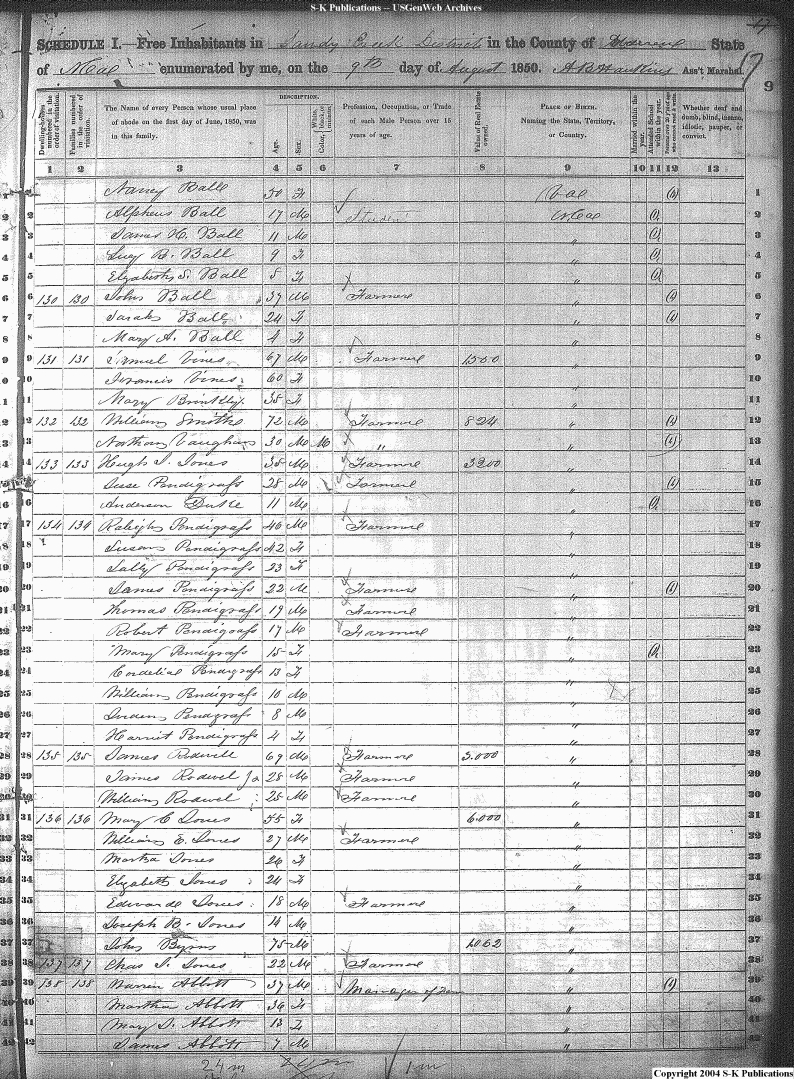 S-K Publications -- USGenWeb Archives
SCHEDULE I.—Free Inhabitants in Sandy Creek District in the County of Warren State
of N Ca enumerated by me, on the 9th day of August 1850. Ass't Marshal.
9
Dwelling-houses numbered in the order of visitation.
Families numbered in the order of visitation.
The Name of every Person whose usual place of abode on the first day of June, 1850, was in this family.
DESCRIPTION.
Age.
Sex.
White, Color, black, or mulatto.
Profession, Occupation, or Trade of each Male Person over 15 years of age.
Value of Real Estate owned.
PLACE OF BIRTH. Naming the State, Territory, or Country.
Married within the year.
Attended School within the year.
Persons over 20 y'rs of age who cannot read & write.
Whether deaf and dumb, blind, insane, idiotic, pauper, or convict.
1 2 3 4 5 6 7 8 9 10 11 12 13
1 Nancy Ball 50 F (1) 1
2 Alpheus Ball 17 M Student (1) 2
3 James H. Ball 11 M " (1) 3
4 Lucy B. Ball 9 F " (1) 4
5 Elizabeth S. Ball 5 F " (1) 5
6 130 130 John Ball 39 M Farmer " (1) 6
7 Sarah Ball 24 F " (1) 7
8 Mary A. Ball 4 F " 8
9 131 131 Vines 67 M Farmer 1500 " 9
10 Vines 60 F " 10
11 Mary Brintly 35 F " 11
12 132 132 William Smith 72 M Farmer 824 " (1) 12
13 Nathan Vaughan 30 M M " " (1) 13
14 133 133 Hugh J. Jones 35 M Farmer 3200 " 14
15 Pendigrass 28 M Farmer " (1) 15
16 Anderson 11 M " (1) 16
17 134 134 Raleigh Pendigrass 46 M Farmer " 17
18 Susan Pendigrass 42 F " 18
19 Sally Pendigrass 23 F " 19
20 James Pendigrass 22 M Farmer " (1) 20
21 Thomas Pendigrass 19 M Farmer " 21
22 Robert Pendigrass 17 M Farmer " 22
23 Mary Pendigrass 15 F " (1) 23
24 Cordelial Pendigrass 13 F " 24
25 William Pendigrass 10 M " 25
26 Pendigrass 8 M " 26
27 Harriet Pendigrass 4 F " 27
28 135 135 James Rodwell 69 M Farmer 3.000 " 28
29 James Rodwel Jr 28 M Farmer " 29
30 William Rodwel 25 M Farmer " 30
31 136 136 Mary C Jones 55 F 6.000 " 31
32 William E. Jones 27 M Farmer " 32
33 Martha Jones 26 F " 33
34 Elizabeth Jones 24 F " 34
35 Edward Jones 18 M Farmer " 35
36 Joseph B. Jones 14 M " 36
37 John Byrns 75 M 1062 " 37
38 137 137 Chas J. Jones 22 M Farmer " 38
39 138 138 Warren Abbott 37 M Manager of " (1) 39
40 Martha Abbott 36 F " 40
41 Mary Abbott 13 F " 41
42 James Abbott 7 M " 42
24 m
1 m
Copyright 2004 S-K Publications